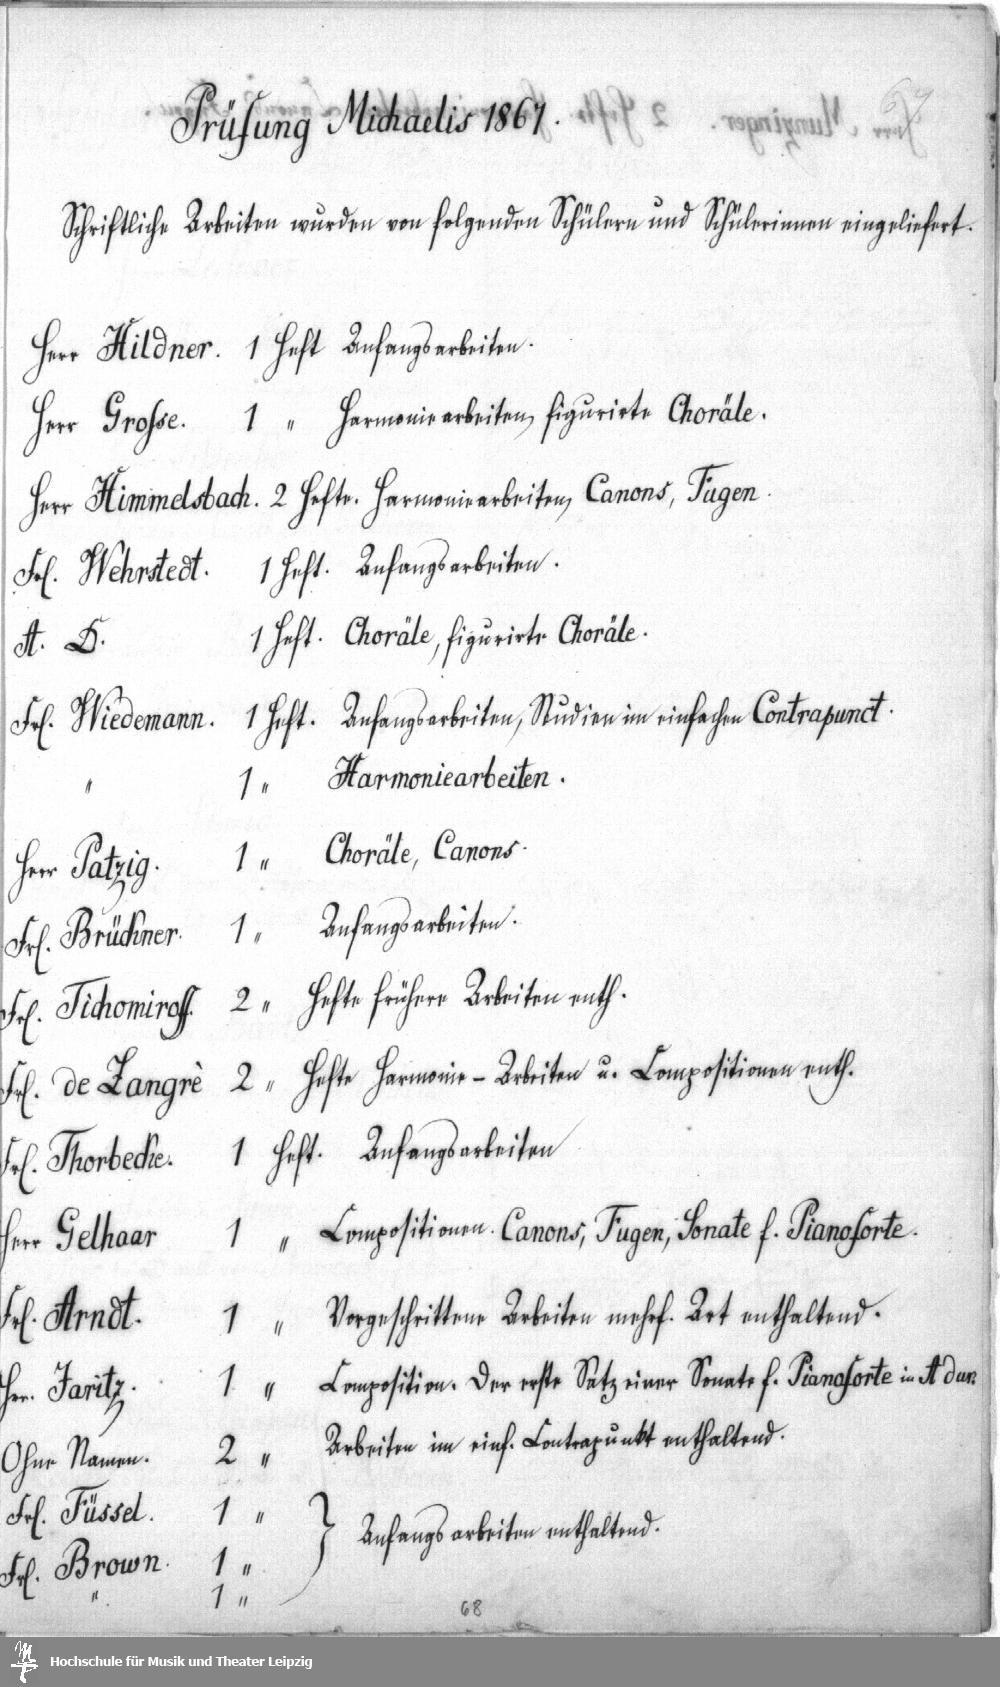 Prüfung Michaelis 1867.
Schriftliche Arbeiten wurden von folgenden Schülern und Schülerinnen eingeliefert.
Herr Hildner. 1 Heft Anfangsarbeiten.
Herr Grosse. 1 " Harmoniearbeiten, figurirte Choräle.
Herr Himmelsbach. 2 Hefte. Harmoniearbeiten, Canons, Fugen.
Frl. Wehrstedt. 1 Heft. Anfangsarbeiten.
A. 1 Heft. Choräle, figurirte Choräle.
Frl. Wiedemann. 1 Heft. Anfangsarbeiten, Studien im einfachen Contrapunct.
" 1 " Harmoniearbeiten.
Herr Patzig. 1 " Choräle, Canons.
Frl. Brückner. 1 " Anfangsarbeiten.
Frl. Tichomiroff. 2 " Hefte frühere Arbeiten enth.
Frl. de Zangrè 2 " Hefte Harmonie-Arbeiten u. Compositionen enth.
Frl. Thorbecke. 1 Heft. Anfangsarbeiten
Herr Gelhaar 1 " Compositionen. Canons, Fugen, Sonate f. Pianoforte.
Frl. Arndt. 1 " Vorgeschrittene Arbeiten mehrf. Art enthaltend.
Hrr. Jaritz. 1 " Composition. Der erste Satz einer Sonate f. Pianoforte in A dur.
Ohne Namen. 2 " Arbeiten im einf. Contrapunkt enthaltend.
Frl. Füssel. 1 "
Anfangsarbeiten enthaltend.
Frl. Brown. 1 "
" 1 "
68
Hochschule für Musik und Theater Leipzig